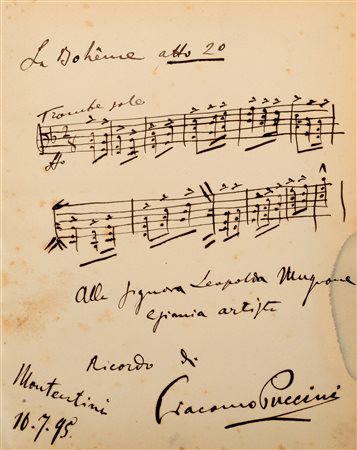 La Bohême atto 2o
Trombe sole
Alla signora Leopolda Mugnone
egregia artista
Ricordo di
Giacomo Puccini
Montentini
10.7.95